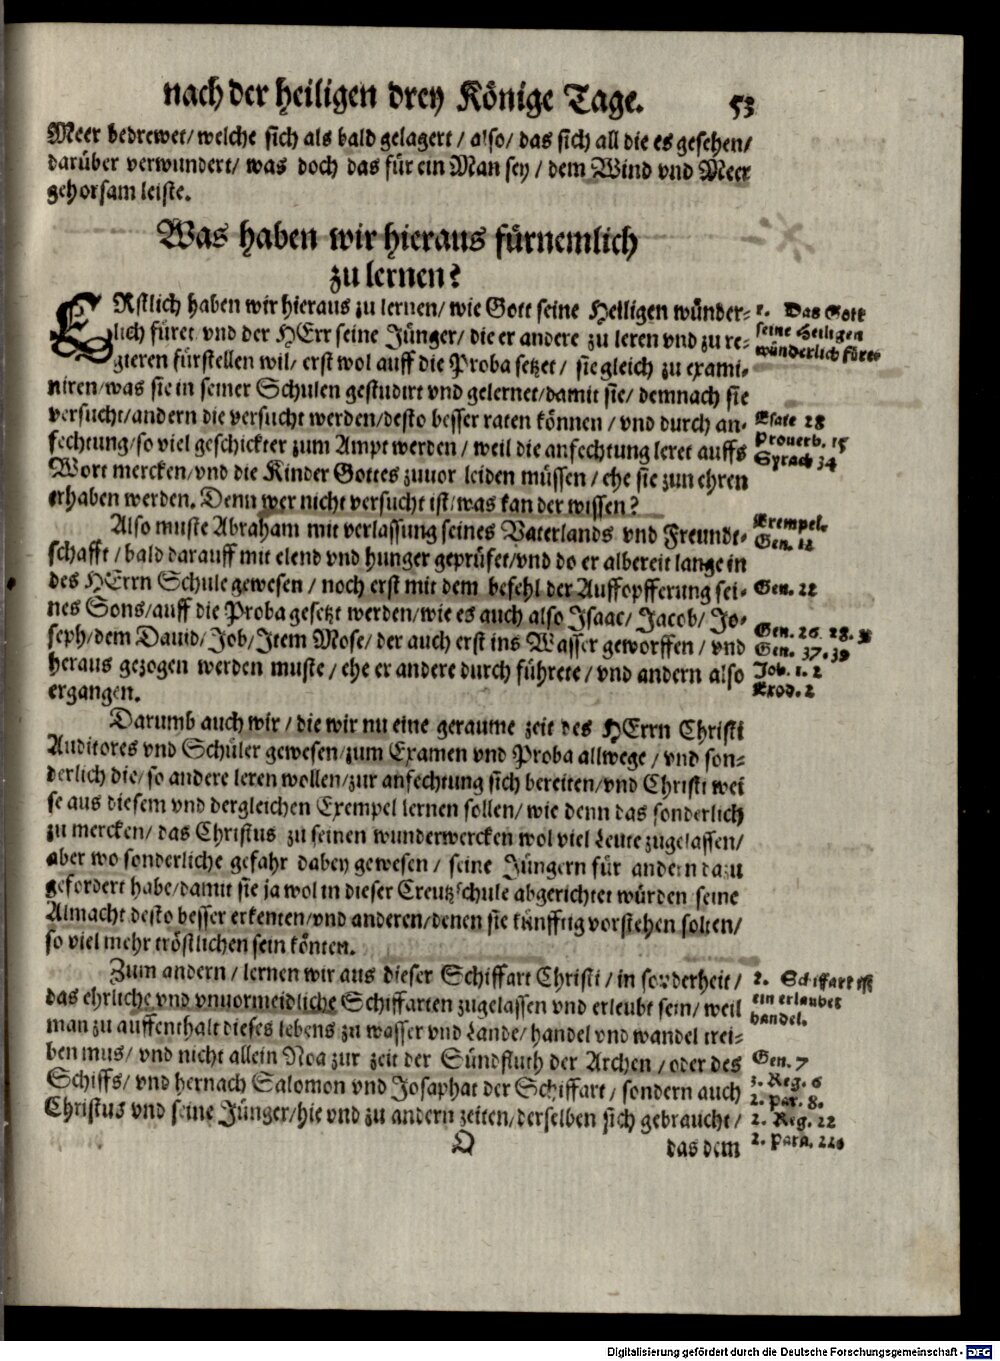 nach der heiligen drey Könige Tage. 53
Meer bedrewet/ welche sich als bald gelagert / also/ das sich all die es gesehen/
darüber verwundert/ was doch das für ein Man sey / dem Wind vnd Meer
gehorsam leiste.
Was haben wir hieraus fürnemlich
zu lernen?
ERstlich haben wir hieraus zu lernen/ wie Gott seine Heiligen wünder-
lich füret vnd der HErr seine Jünger/ die er andere zu leren vnd zu re-
gieren fürstellen wil/ erst wol auff die Proba setzet / sie gleich zu exami-
niren/was sie in seiner Schulen gestudirt vnd gelernet/damit sie/ demnach sie
versucht/andern die versucht werden/desto besser raten können / vnd durch an-
fechtung/so viel geschickter zum Ampt werden / weil die anfechtung leret auffs
Wort mercken/vnd die Kinder Gottes zuuor leiden müssen / ehe sie zun ehren
erhaben werden. Denn wer nicht versucht ist/was kan der wissen?
1. Das Gott
seine Heiligen
wünderlich füret
Esaie 28
Prouerb. 15
Syrach 34
Also muste Abraham mit verlassung seines Vaterlands vnd Freundt-
schafft / bald darauff mit elend vnd hunger geprüfet/vnd do er albereit lange in
des HErrn Schule gewesen / noch erst mit dem befehl der Auffopfferung sei-
nes Sons/auff die Proba gesetzt werden/wie es auch also Isaac/ Jacob/ Jo-
seph/dem Dauid/ Job/ Item Mose/ der auch erst ins Wasser geworffen / vnd
heraus gezogen werden muste / ehe er andere durch führete / vnd andern also
ergangen.
Exempel.
Gen. 12
Gen. 22
Gen. 26. 28.
Gen. 37. 39
Job. 1. 2
Exod. 2
Darumb auch wir / die wir nu eine geraume zeit des HErrn Christi
Auditores vnd Schüler gewesen/zum Examen vnd Proba allwege / vnd son-
derlich die/ so andere leren wollen/zur anfechtung sich bereiten/vnd Christi wei
se aus diesem vnd dergleichen Exempel lernen sollen/ wie denn das sonderlich
zu mercken/ das Christus zu seinen wunderwercken wol viel Leute zugelassen/
aber wo sonderliche gefahr dabey gewesen / seine Jüngern für andern dazu
gefordert habe/damit sie ja wol in dieser Creutzschule abgerichtet würden seine
Almacht desto besser erkenten/vnd anderen/denen sie künfftig vorstehen solten/
so viel mehr tröstlichen sein könten.
Zum andern / lernen wir aus dieser Schiffart Christi / in sonderheit /
das ehrliche vnd vnuormeidliche Schiffarten zugelassen vnd erleubt sein/ weil
man zu auffenthalt dieses lebens zu wasser vnd Lande/ handel vnd wandel trei-
ben mus/ vnd nicht allein Noa zur zeit der Sündfluth der Archen / oder des
Schiffs/ vnd hernach Salomon vnd Josaphat der Schiffart / sondern auch
Christus vnd seine Jünger/hie vnd zu andern zeiten/derselben sich gebraucht /
2. Schiffart ist
ein erlaubet
handel.
Gen. 7
3. Reg. 6
2. Par. 8.
2. Reg. 22
2. Para.
O das dem
Digitalisierung gefördert durch die Deutsche Forschungsgemeinschaft - DFG